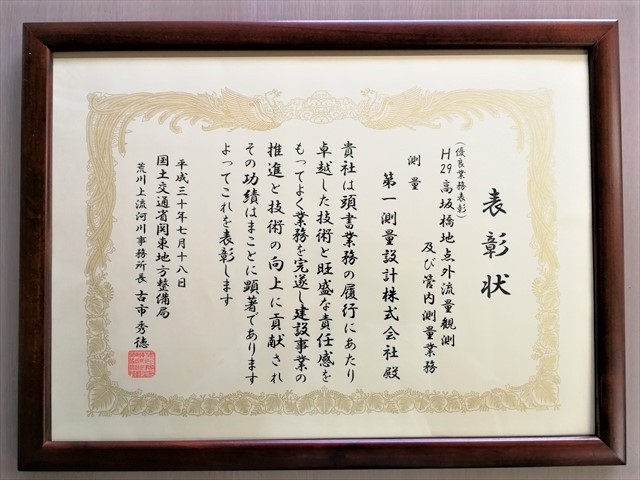 表彰状
(優良業務表彰)
H29高坂橋地点外流量観測
及び管内測量業務
測量
第一測量設計株式会社殿
貴社は頭書業務の履行にあたり
卓越した技術と旺盛な責任感を
もってよく業務を完遂し建設事業の
推進と技術の向上に貢献され
その功績はまことに顕著であります
よってこれを表彰します
平成三十年七月十八日
国土交通省関東地方整備局
荒川上流河川事務所長 古市秀徳